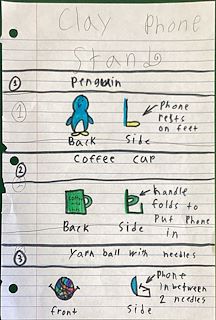 Clay Phone
Stand
① Penguin
①
Phone
rests
on feet
Back Side
Coffee cup
②
handle
folds to
put Phone
in
Back Side
③ Yarn ball with needles
Phone
in between
2 needles
front Side